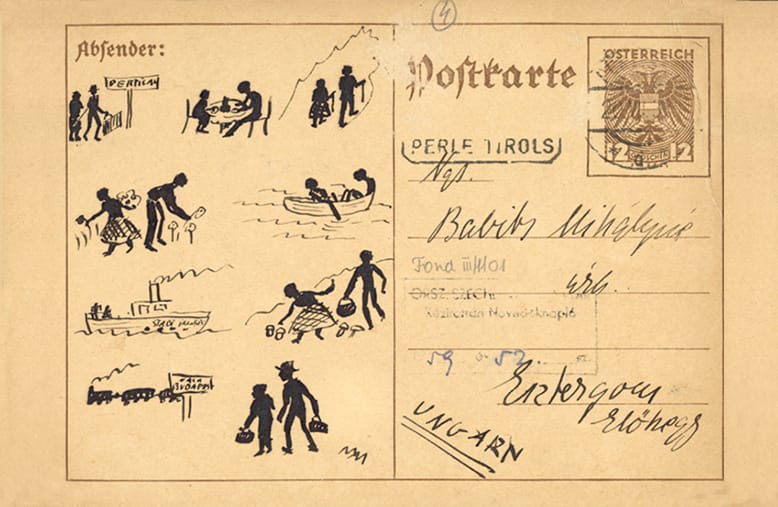 4
Absender:
Postkarte
ÖSTERREICH
12 GROSCHEN 12
PERTISAU
PERLE TIROLS
Ngs.
Babits Mihályné
Fond III/1101
úrh.
ORSZ. SZÉCH.
Kézirattári Növedéknapló
59 52.
BUDAPEST
Esztergom
Előhegy
UNGARN